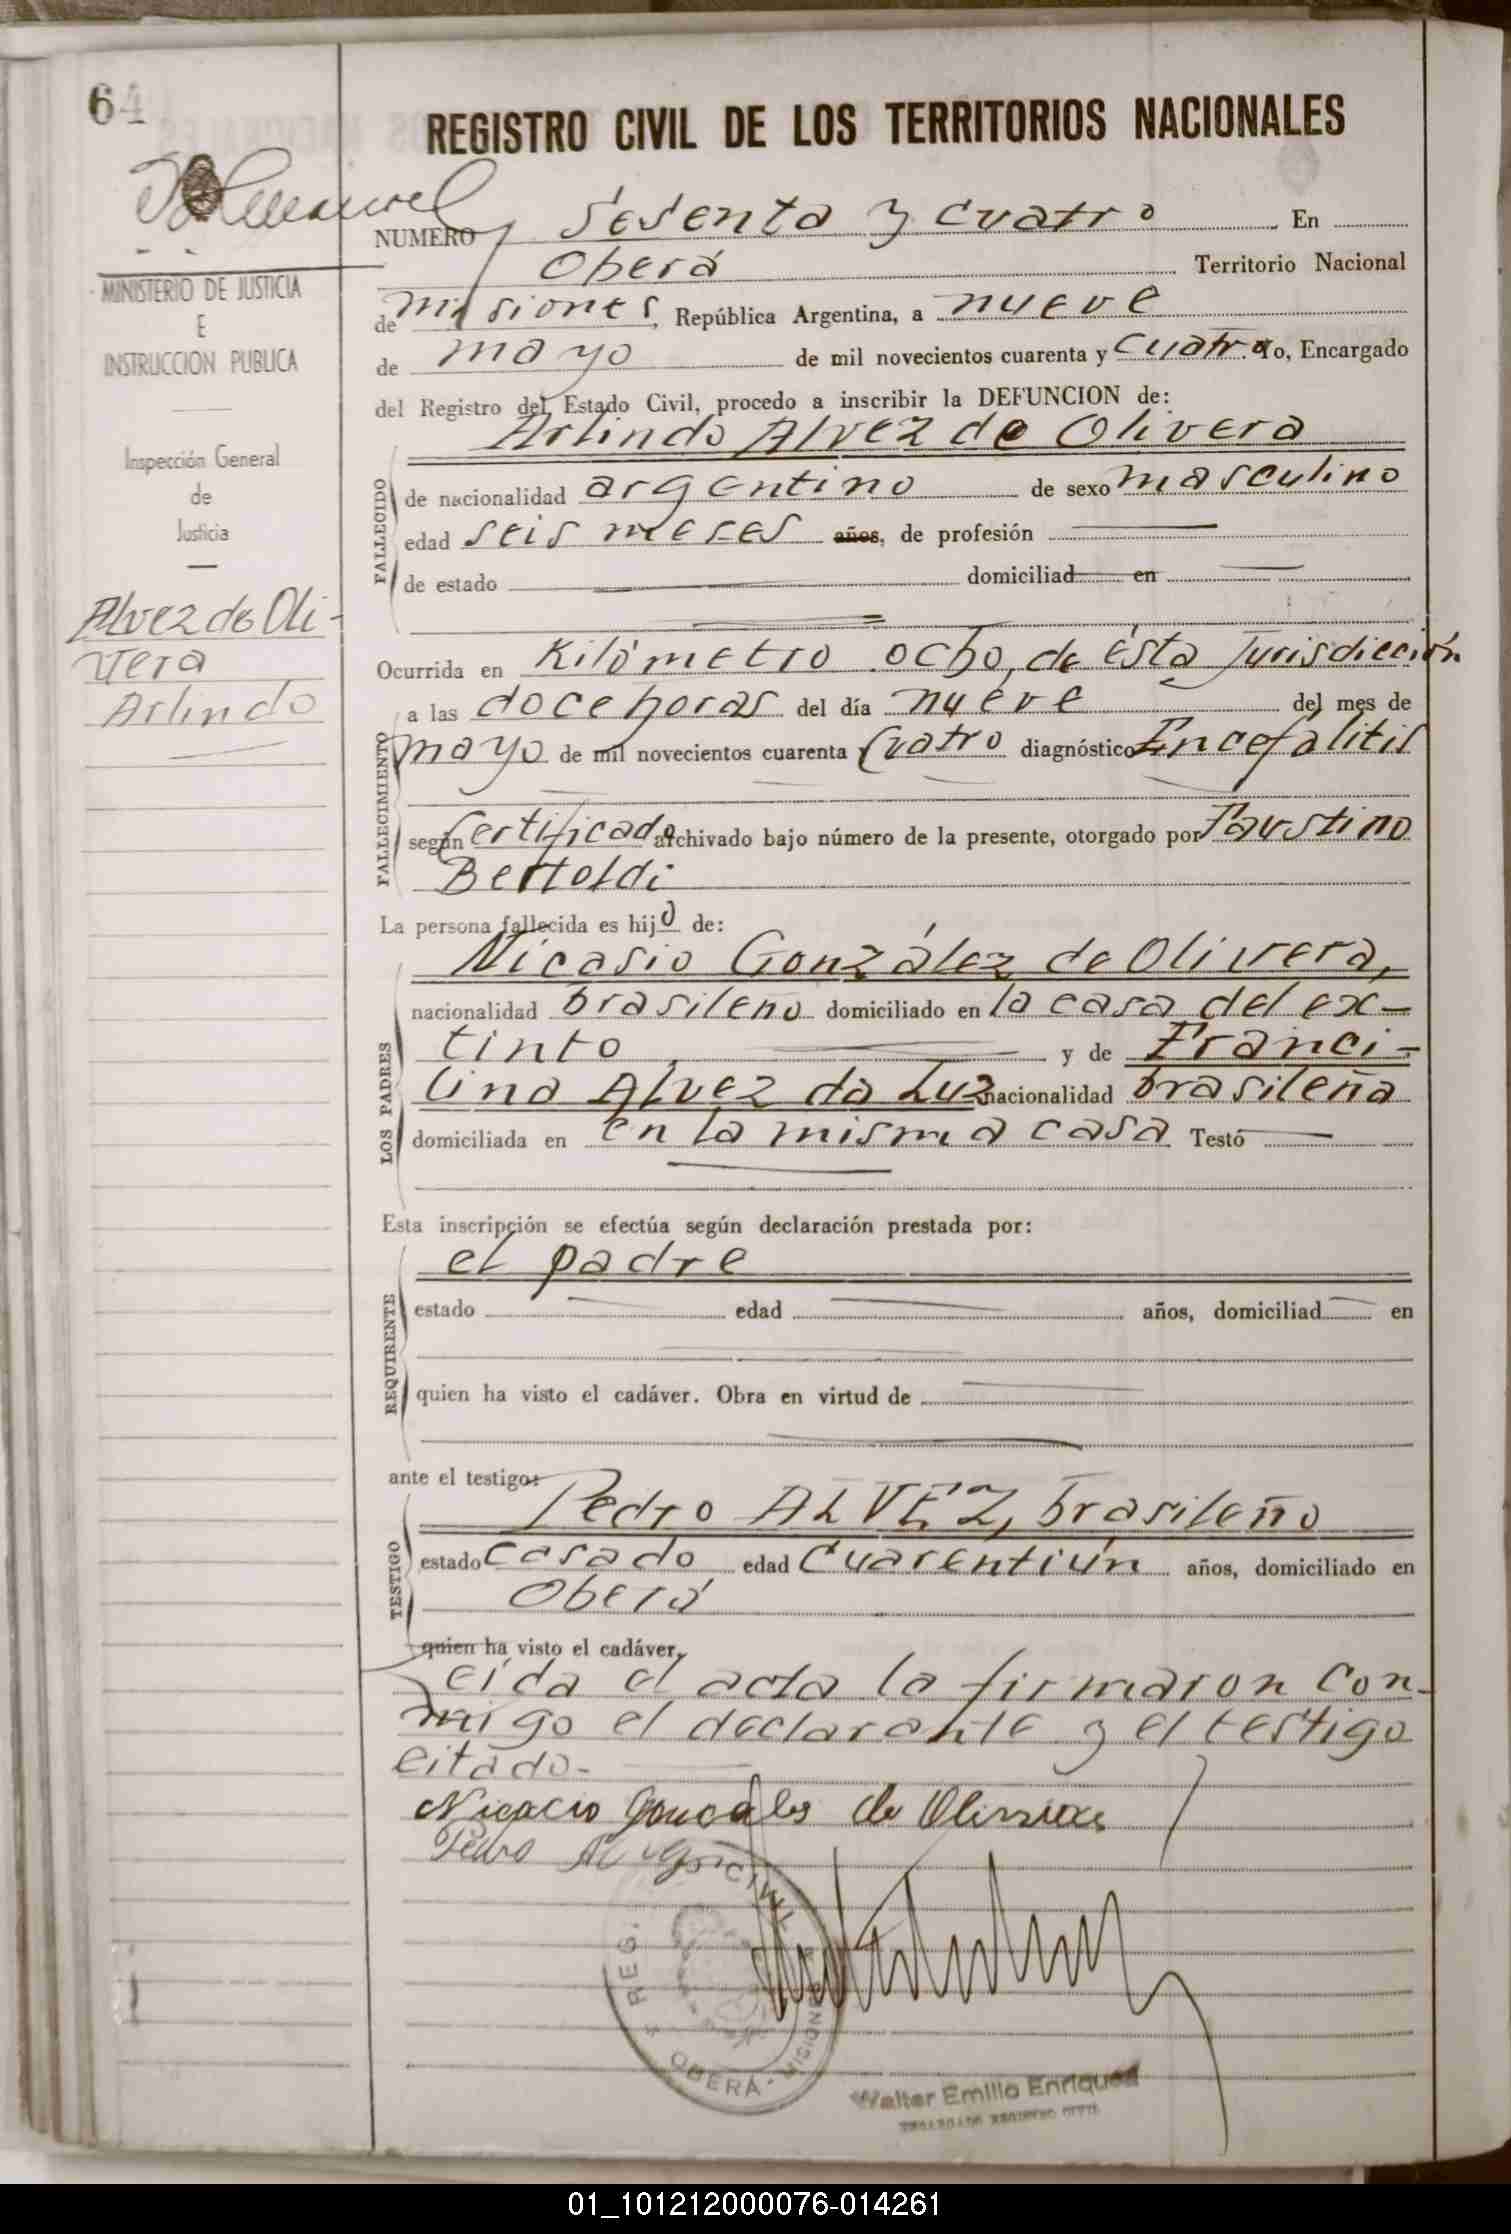 64
REGISTRO CIVIL DE LOS TERRITORIOS NACIONALES
NUMERO Sesenta y cuatro En
Oberá Territorio Nacional
de misiones, República Argentina, a nueve
de mayo de mil novecientos cuarenta y cuatro Yo, Encargado
del Registro del Estado Civil, procedo a inscribir la DEFUNCION de:
Arlindo Alvez de Olivera
FALLECIDO
de nacionalidad argentino de sexo masculino
edad seis meses años, de profesión
de estado domiciliad en
Ocurrida en Kilómetro ocho, de ésta Jurisdicción
FALLECIMIENTO
a las doce horas del día nueve del mes de
mayo de mil novecientos cuarenta y cuatro diagnóstico Encefálitis
según certificado archivado bajo número de la presente, otorgado por Faustino
Bertoldi
La persona fallecida es hijo de:
LOS PADRES
Nicasio González de Olivera,
nacionalidad brasileño domiciliado en la casa del ex-
tinto y de Franci-
lina Alvez da Luz nacionalidad brasileña
domiciliada en en la misma casa Testó
Esta inscripción se efectúa según declaración prestada por:
REQUIRENTE
el padre
estado edad años, domiciliad en
quien ha visto el cadáver. Obra en virtud de
ante el testigo:
TESTIGO
Pedro ALVEZ, brasileño
estado casado edad cuarentiún años, domiciliado en
Oberá
quien ha visto el cadáver.
Leída el acta la firmaron con-
migo el declarante y el testigo
citado.-
Nicacio Goncales de Oliveira
Pedro
REG. CIVIL
OBERÁ - MISIONES
Walter Emilio Enriquez
ENCARGADO REGISTRO CIVIL
MINISTERIO DE JUSTICIA
E
INSTRUCCION PUBLICA
Inspección General
de
Justicia
Alvez de Oli-
vera
Arlindo
01_101212000076-014261